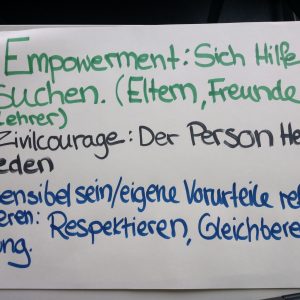 Empowerment: Sich Hilfe
suchen. (Eltern, Freunde
Lehrer)
Zivilcourage: Der Person He
eden
ensibel sein/eigene Vorurteile re
eren: Respektieren, Gleichbere
ung.